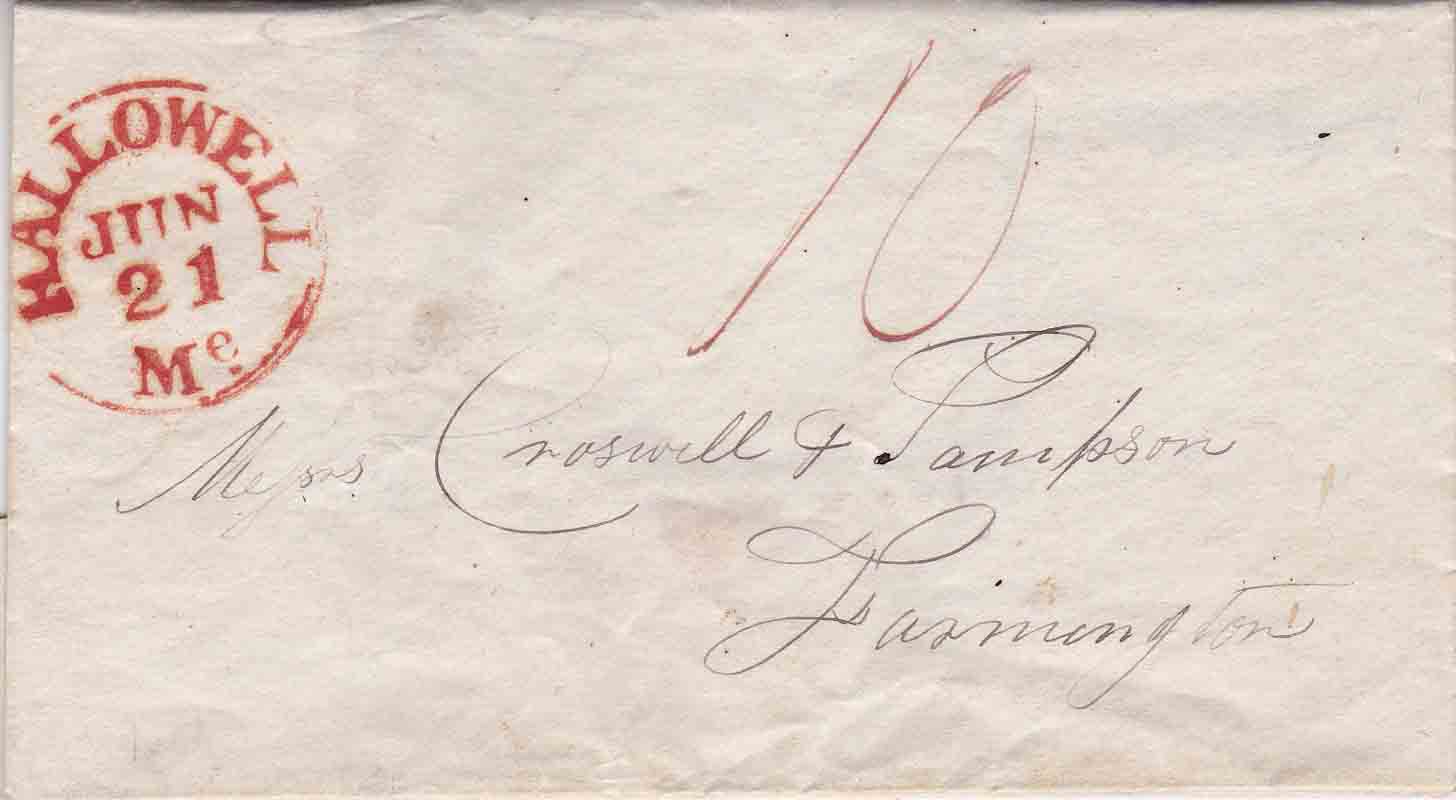 HALLOWELL
JUN
21
Me.
10
Messrs Croswell & Sampson
Farmington